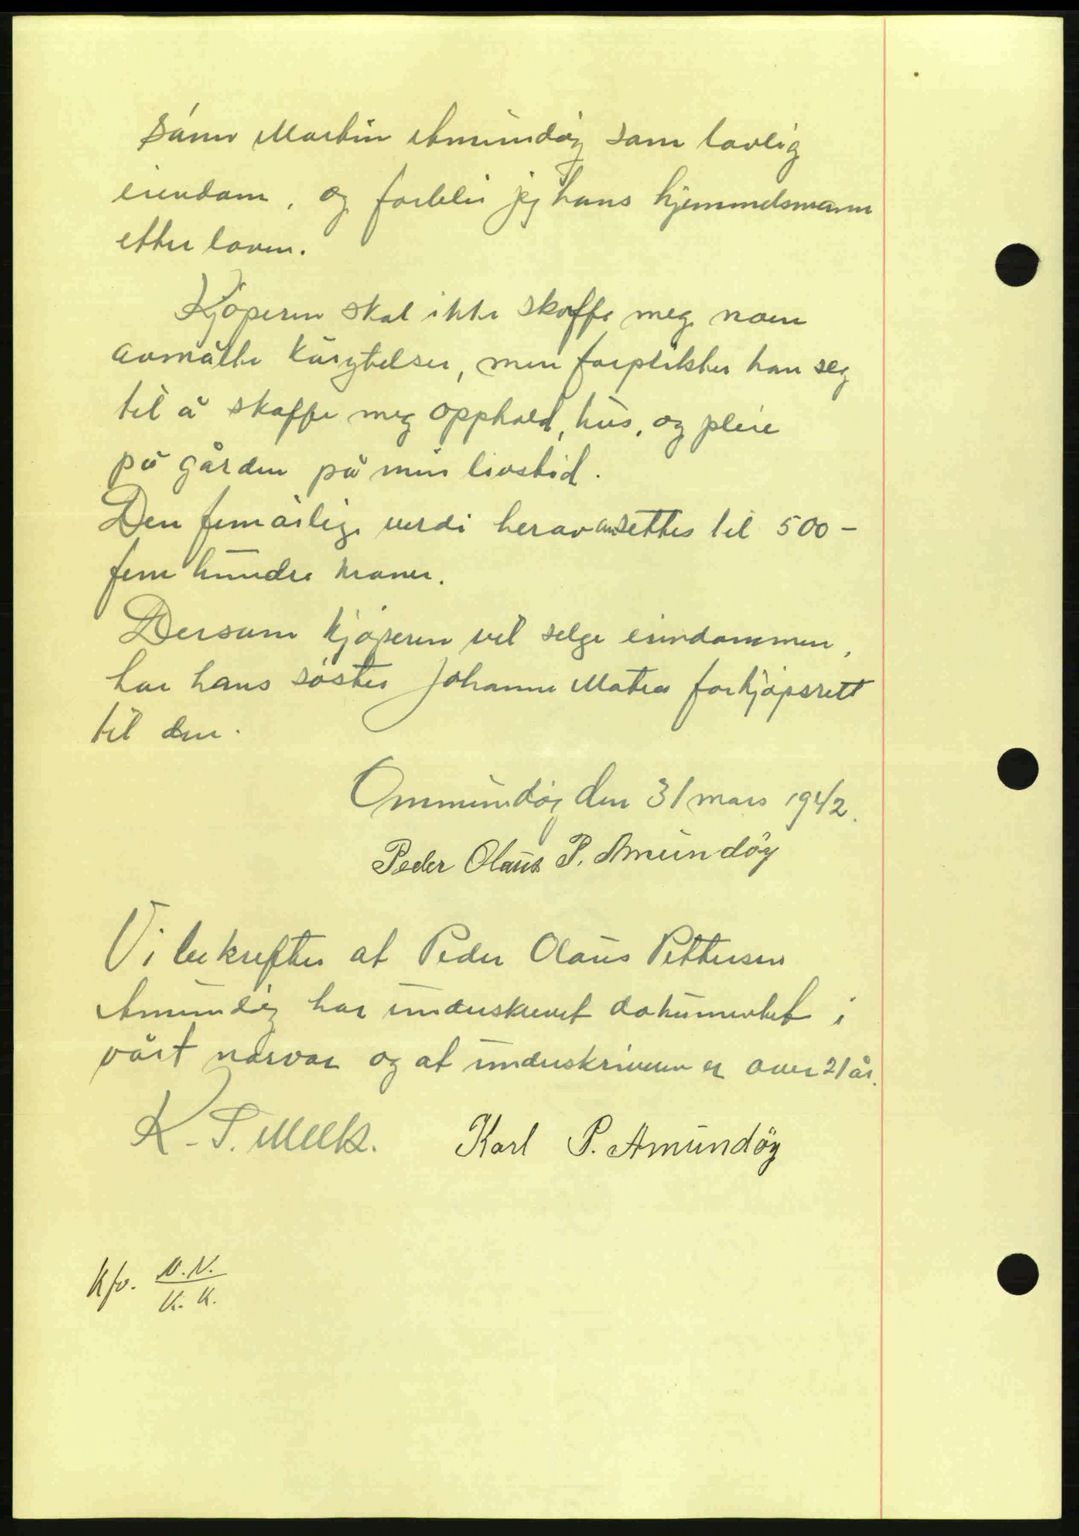 sånn Martin Amundøy som lovlig
eiendom, og forblir jeg hans hjemmelsmann
etter loven.
Kjøperen skal ikke skaffe meg noen
avmålte kårytelser, men forplikter han seg
til å skaffe meg opphold, hus, og pleie
på gården på min livstid.
Den femårlige verdi herav ansettes til 500 -
fem hundre kroner.
Dersom kjøperen vil selge eiendommen,
har hans søster Johanne Matea forkjøpsrett
til den.
Ommundøy den 31 mars 1942.
Peder Olaus P. Amundøy
Vi bekrefter at Peder Olaus Pettersen
Amundøy har underskrevet dokumentet i
vårt nærvær og at underskriveren er over 21 år.
K. P. Meek. Karl P. Amundøy
Kfv. N.N.
K. K.